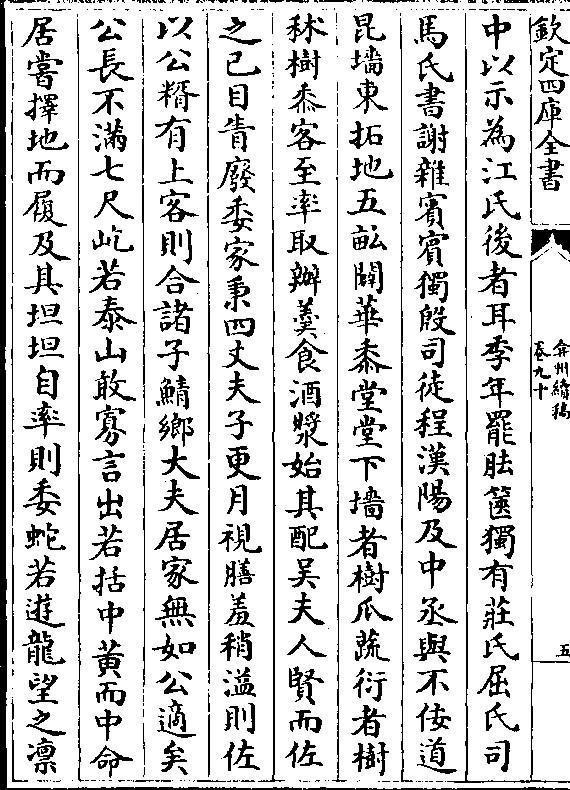 欽定四庫全書
弇州續稿
卷九十
五
中以示為江氏後者耳季年罷胠篋獨有莊氏屈氏司
馬氏書謝雜賓賓獨殷司徒程漢陽及中丞與不佞道
昆墻東拓地五畝闢華黍堂堂下墻者樹瓜蔬衍者樹
秫樹黍客至率取辦羮食酒漿始其配吴夫人賢而佐
之已目眚廢委家秉四丈夫子更月視膳羞稍溢則佐
以公糈有上客則合諸子鯖鄉大夫居家無如公適矣
公長不滿七尺屹若泰山敢寡言出若括中黄而中命
居嘗擇地而履及其坦坦自率則委蛇若遊龍望之凛